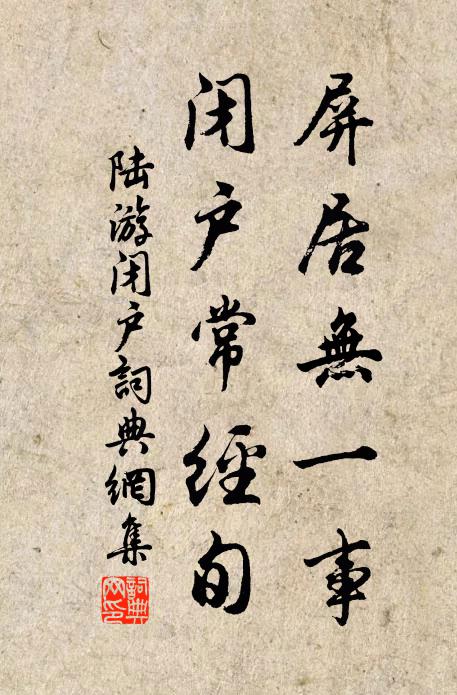 屏居無一事
闭户常經旬
陆游闭户詞典網集
詞典网印